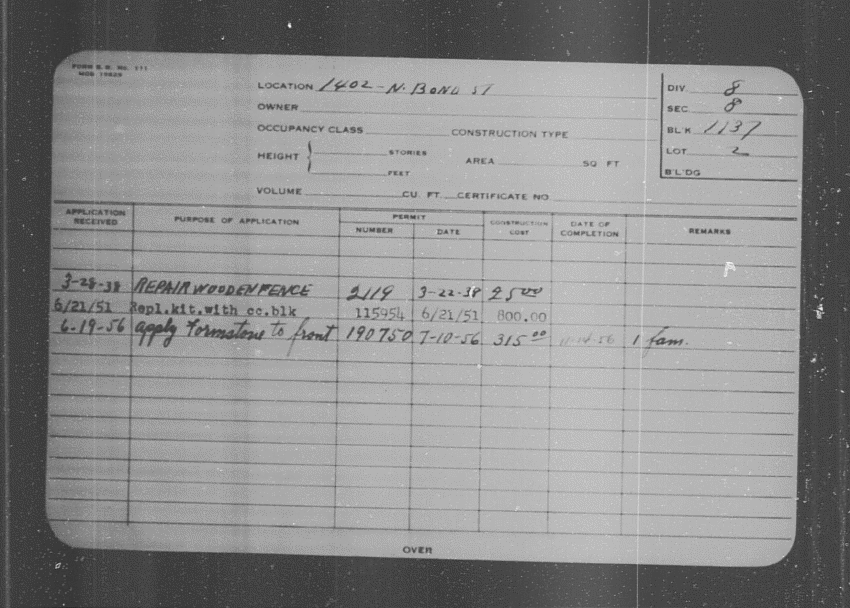 FORM B. E. No. 111
MOS 19825
LOCATION 1402 - N. BOND ST
DIV. 8
OWNER
SEC 8
OCCUPANCY CLASS CONSTRUCTION TYPE
BL'K 1137
HEIGHT { STORIES
FEET
AREA SQ FT
LOT 2
B'L'DG
VOLUME CU. FT. CERTIFICATE NO
APPLICATION RECEIVED PURPOSE OF APPLICATION PERMIT NUMBER DATE CONSTRUCTION COST DATE OF COMPLETION REMARKS
3-28-38 REPAIR WOODEN FENCE 2119 3-22-38 25 00
6/21/51 Repl.kit.with cc.blk 115954 6/21/51 800.00
6-19-56 apply Formstone to front 190750 7-10-56 315 00 11-14-56 1 fam.
OVER